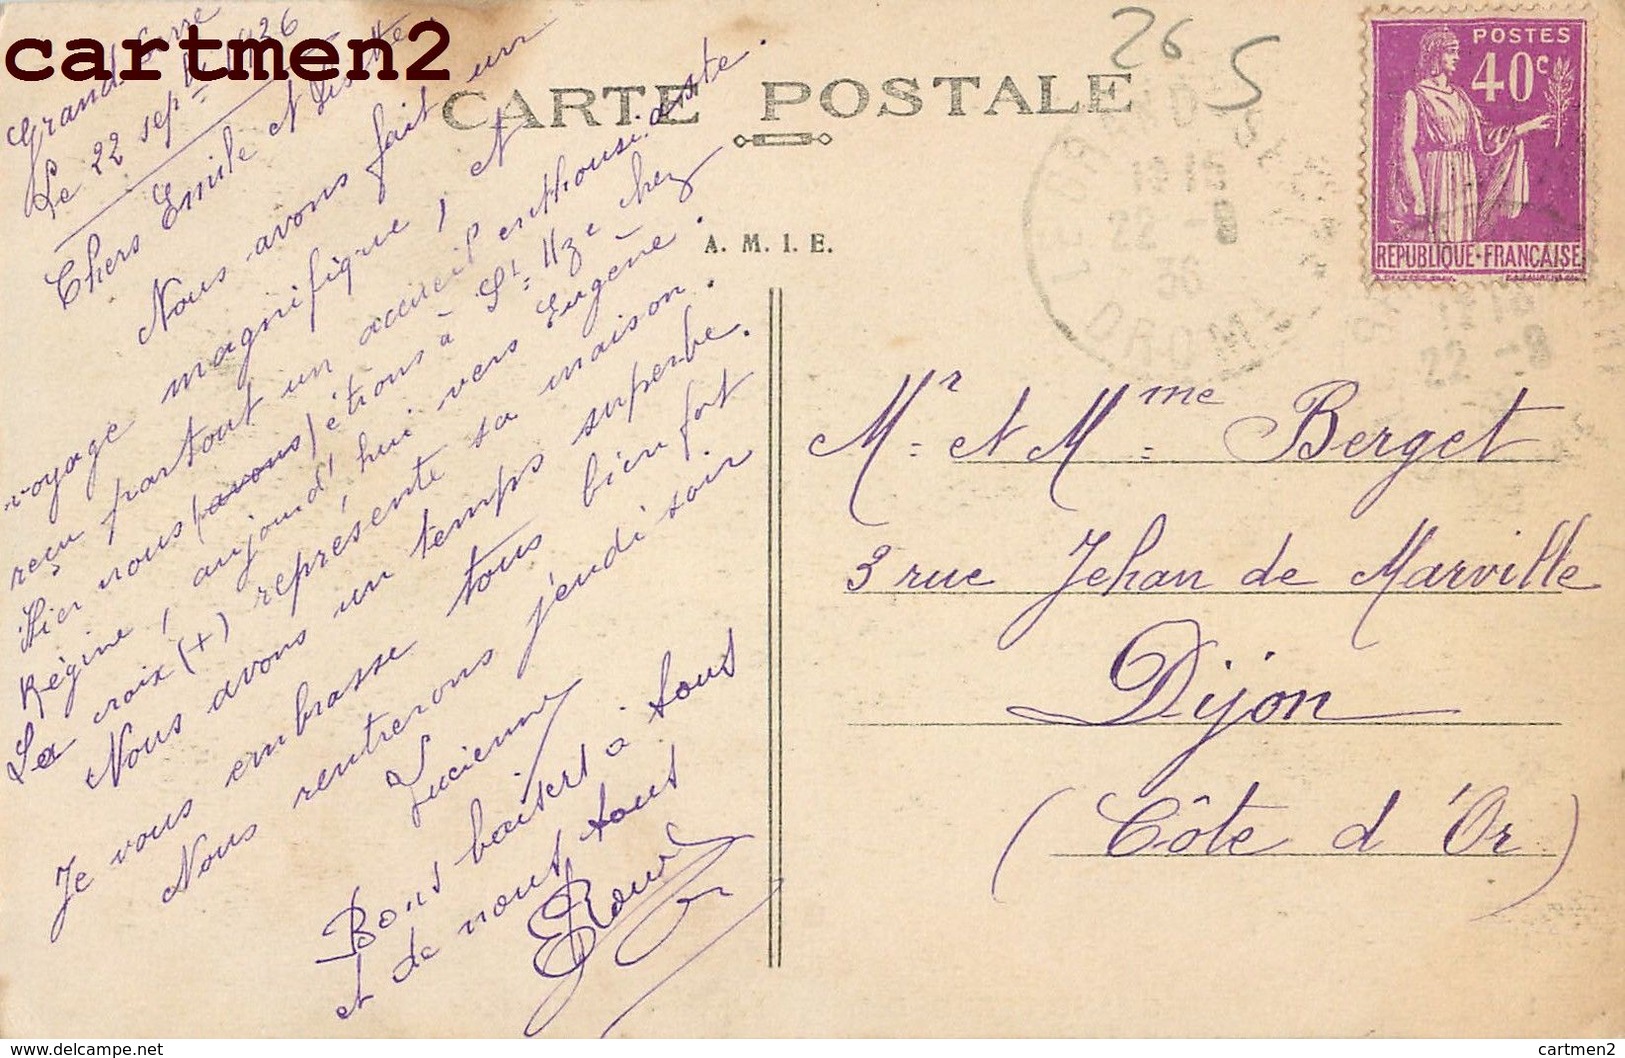 cartmen2
Grand Serre
Le 22 sept. 1936
Chers Emile et Lisette
Nous avons fait un
voyage magnifique, et
reçu partout un accueil enthousiaste.
Hier nous (avons) étions à St. Uze chez
Régine, aujourd'hui vers Eugène.
La croix (+) représente sa maison.
Nous avons un temps superbe.
Je vous embrasse tous bien fort
Nous rentrerons jeudi soir
Lucienne
Bons baisers à tous
et de nous tous
CARTE POSTALE
A. M. I. E.
26 5
POSTES
40c
REPUBLIQUE-FRANÇAISE
22 -9
36
DROME
22 -9
Mr. et Mme. Berget
3 rue Jehan de Marville
Dijon
(Côte d'Or)
https://www.delcampe.net/fr/collections/store/cartmen2
cartmen2